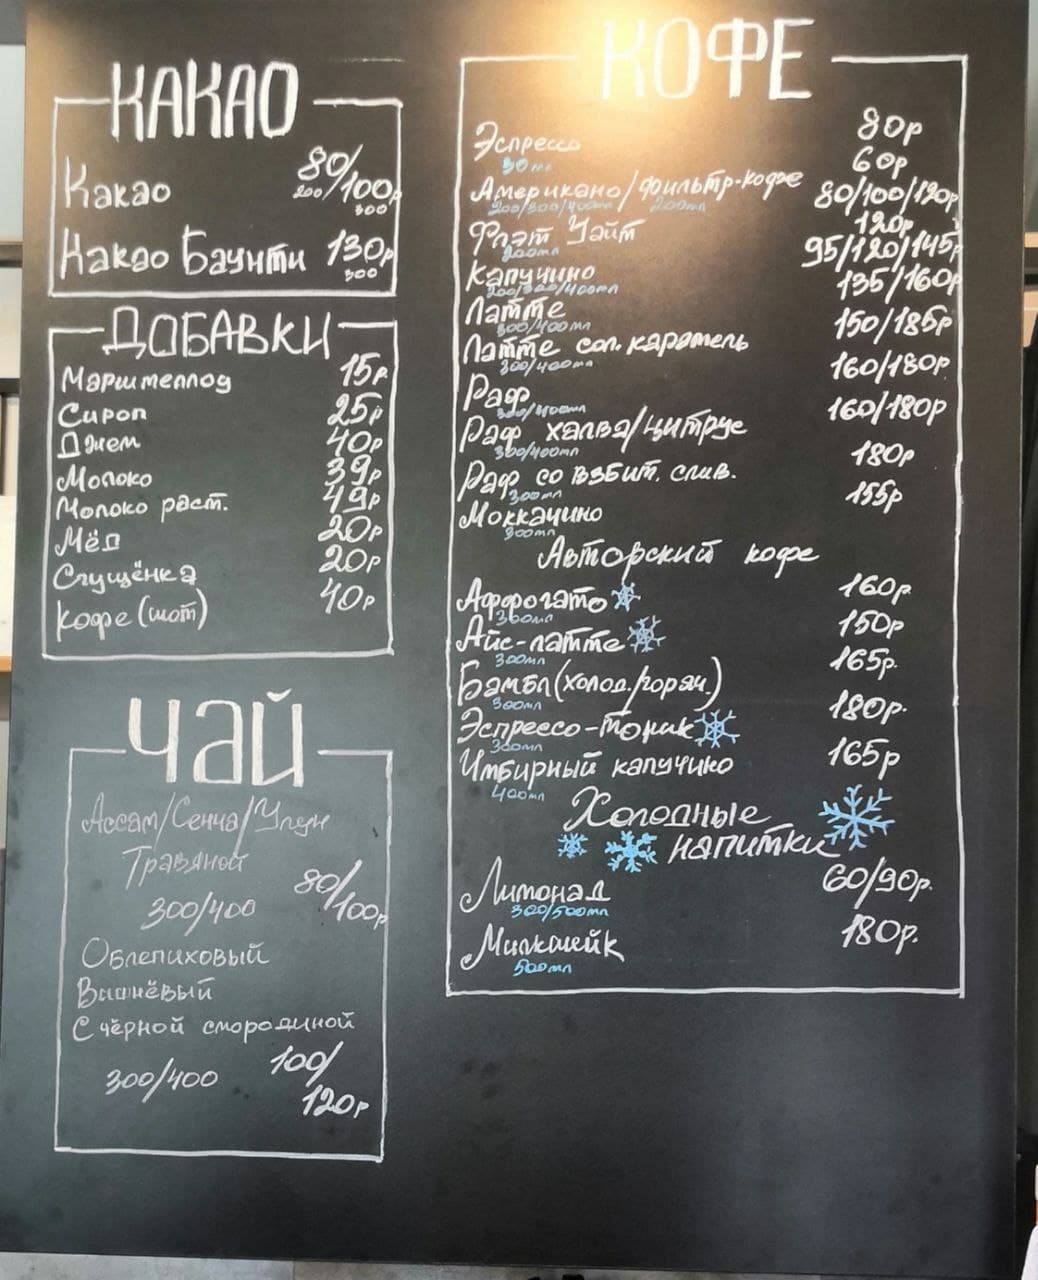 КАКАО
Какао 80/100р
200 300
Какао Баунти 130р
300
ДОБАВКИ
Маршмеллоу 15р
Сироп 25р
Джем 40р
Молоко 39р
Молоко раст. 49р
Мёд 20р
Сгущёнка 20р
Кофе (шот) 40р
ЧАЙ
Ассам/Сенча/Улун
Травяной
300/400 80/100р
Облепиховый
Вишнёвый
С чёрной смородиной
300/400 100/120р
КОФЕ
Эспрессо 80р
30мл 60р
Американо/Фильтр-кофе 80/100/120р
200/300/400мл 200мл
Флэт Уайт 120р
200мл
Капучино 95/120/145р
200/300/400мл
Латте 135/160р
300/400мл
Латте сол. карамель 150/185р
300/400мл
Раф 160/180р
300/400мл
Раф халва/цитрус 160/180р
300/400мл
Раф со взбит. слив. 180р
300мл
Моккачино 155р
300мл
Авторский кофе
Аффогато 160р
300мл
Айс-латте 150р
300мл
Бамбл (холод./горяч.) 165р.
300мл
Эспрессо-тоник 180р.
300мл
Имбирный капучино 165р
400мл
Холодные
напитки
Лимонад 60/90р.
300/500мл
Милкшейк 180р.
500мл